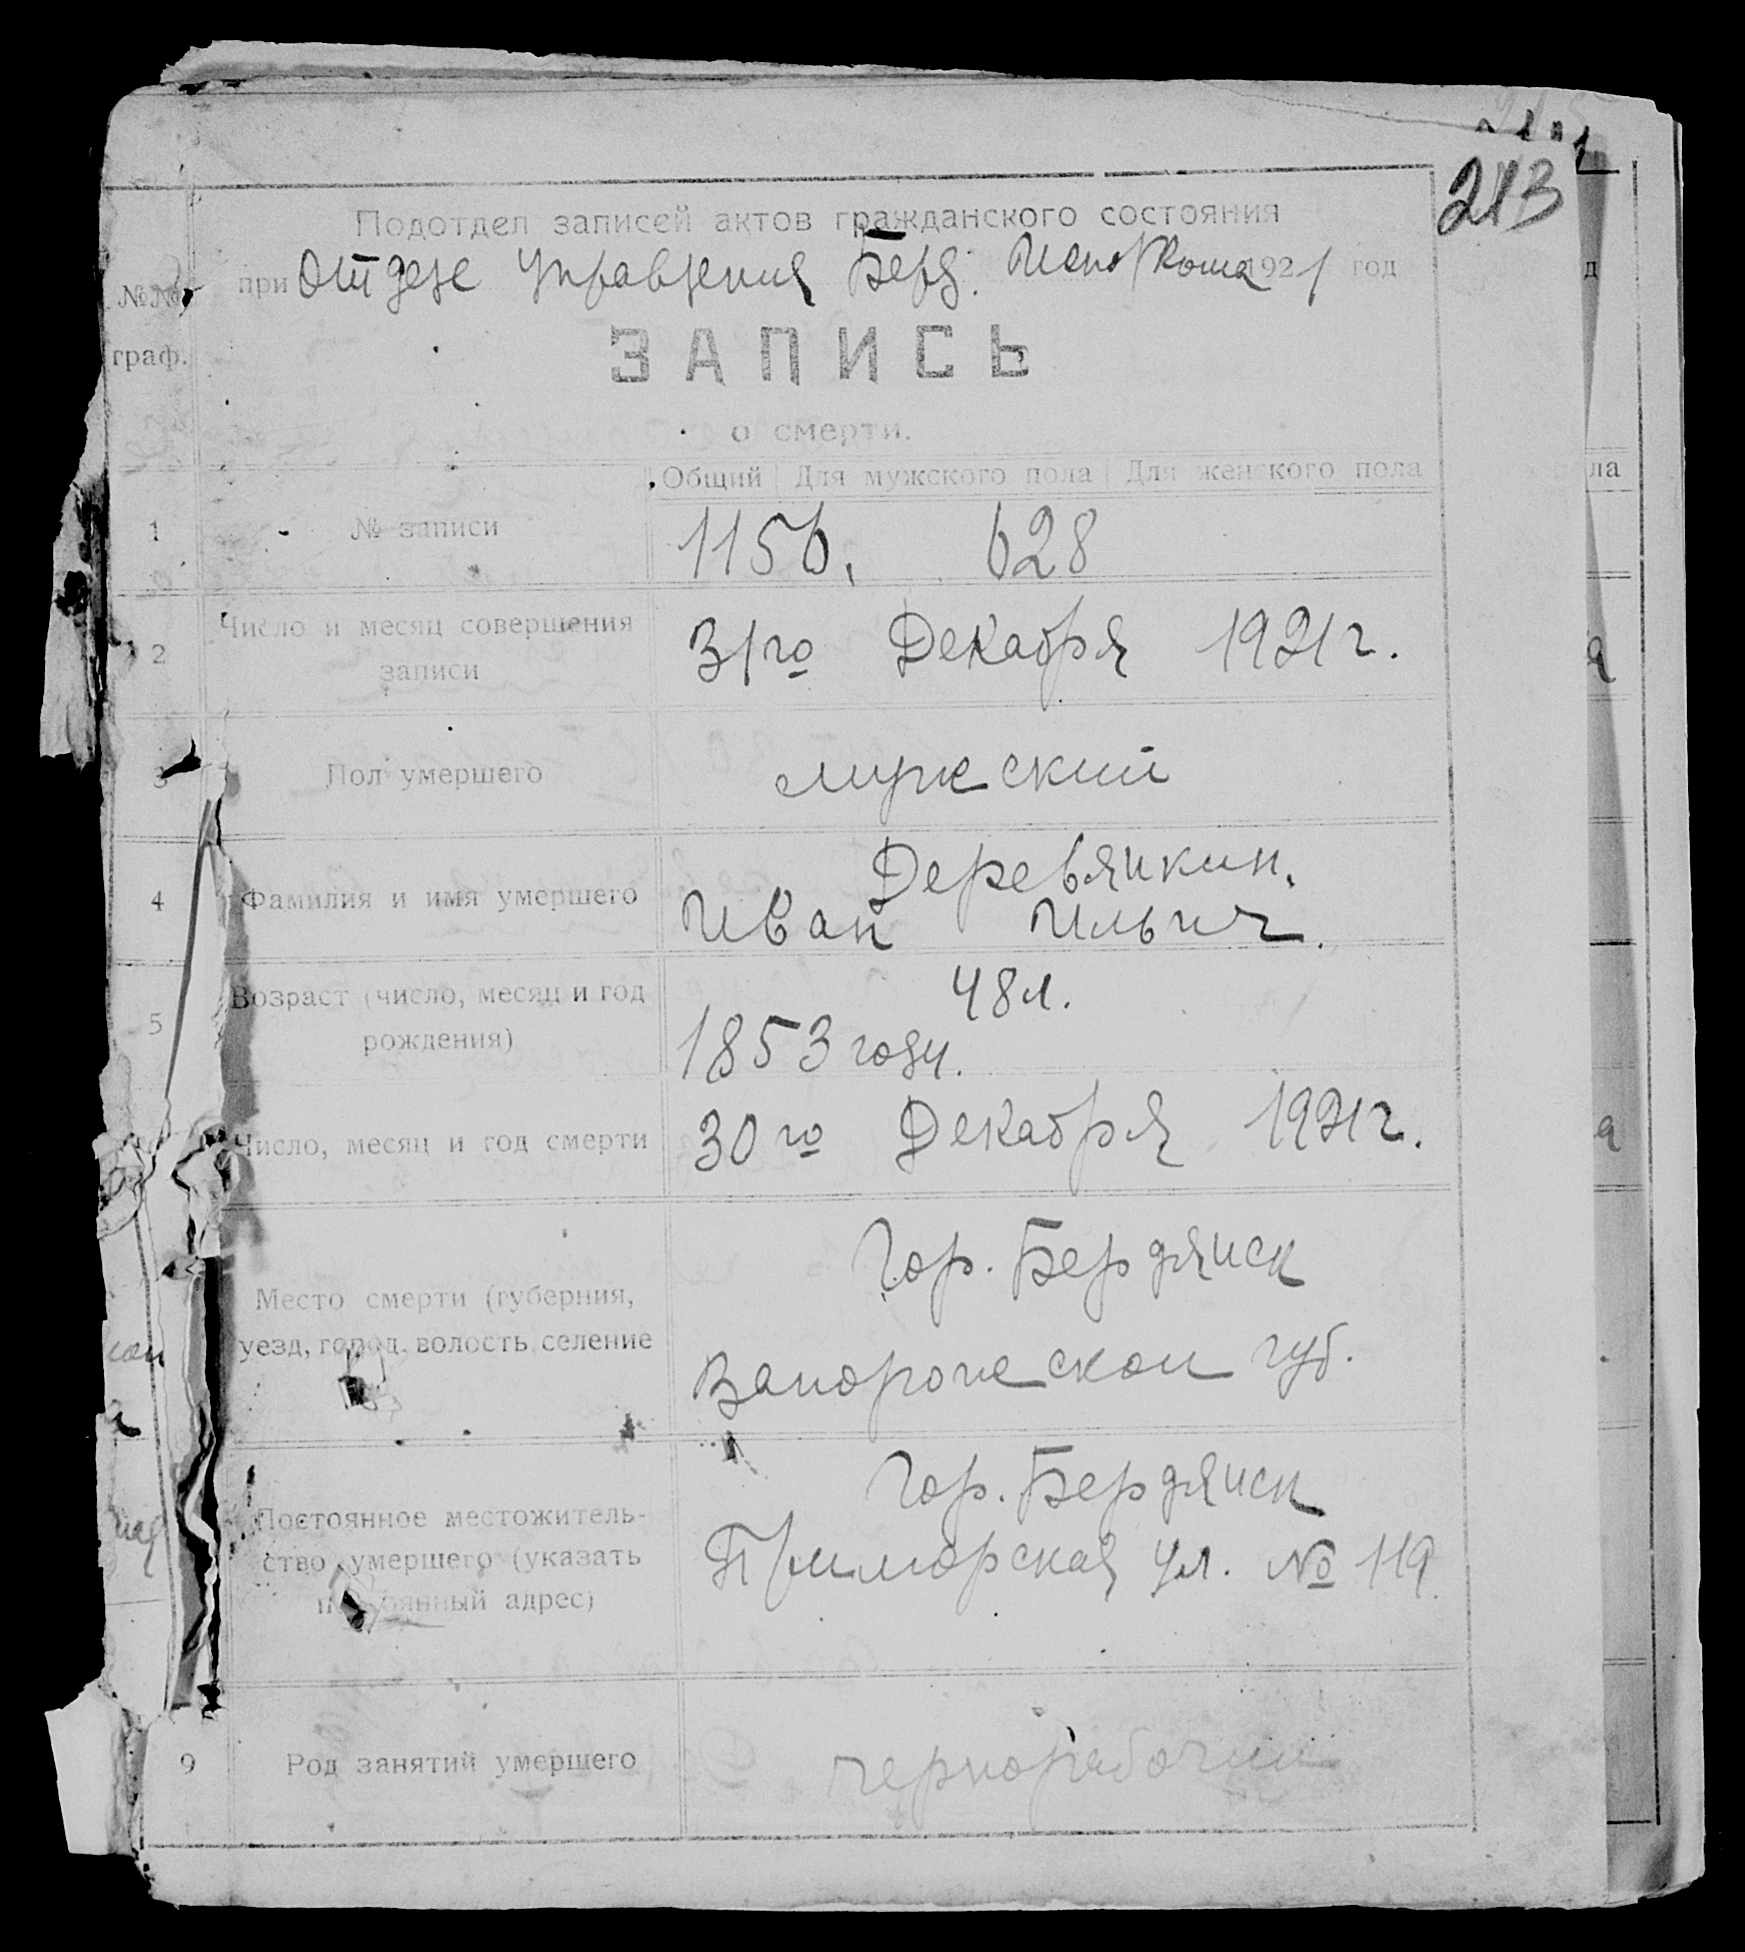 213
Подотдел записей актов гражданского состояния
№№ при Отделе Управления Берд. Исполкома 1921 год
граф.
ЗАПИСЬ
о смерти.
Общий Для мужского пола Для женского пола
1 № записи 1156. 628
2 Число и месяц совершения записи 31го Декабря 1921 г.
3 Пол умершего мужеский
4 Фамилия и имя умершего Деревянкин.
Иван Ильич.
5 Возраст (число, месяц и год рождения) 48 л.
1853 году.
Число, месяц и год смерти 30го Декабря 1921 г.
Место смерти (губерния, Гор. Бердянск
уезд, город, волость, селение Запорожской губ.
Постоянное местожитель- Гор. Бердянск
ство умершего (указать Приморская ул. № 119.
постоянный адрес)
9 Род занятий умершего чернорабочий